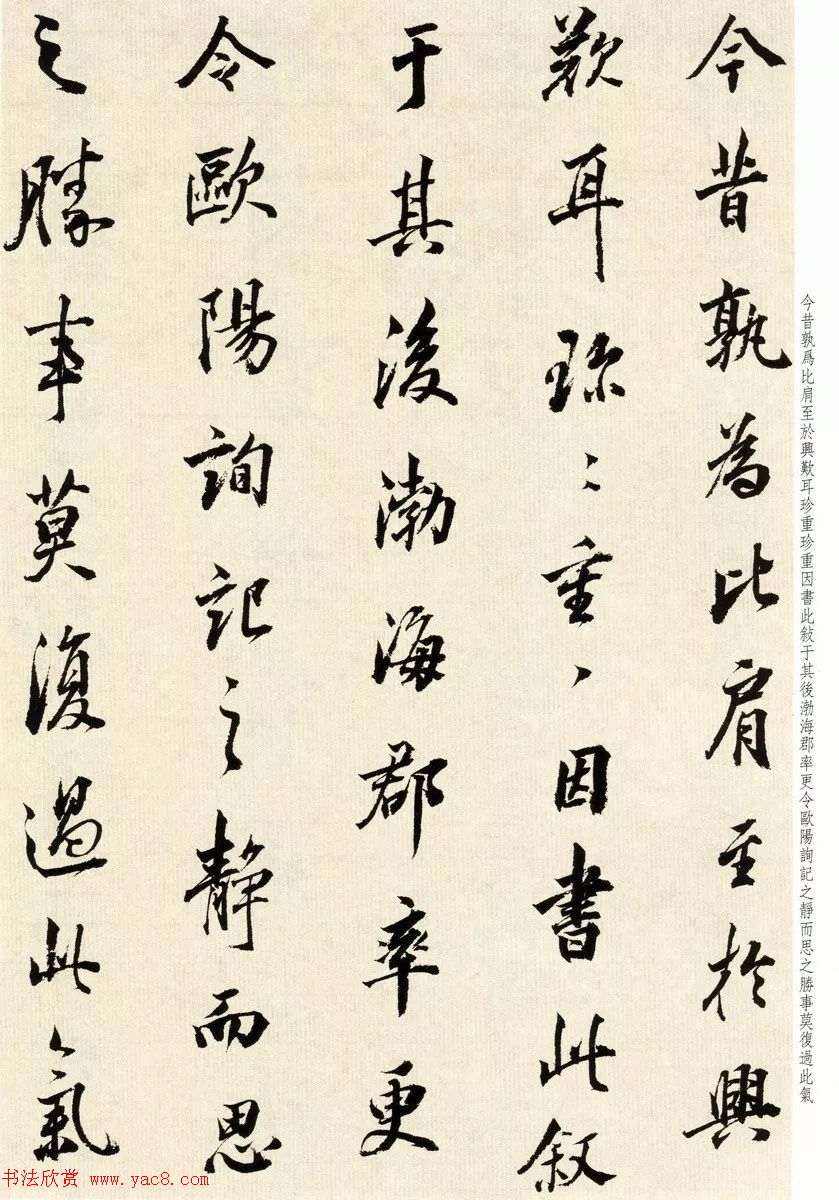 今昔孰為比肩至於興
歎耳珍〻重〻因書此叙
于其後渤海郡率更
令歐陽詢記之靜而思
之勝事莫復過此氣
今昔孰爲比肩至於興歎耳珍重珍重因書此敍于其後渤海郡率更令歐陽詢記之靜而思之勝事莫復過此氣
书法欣赏 www.yac8.com